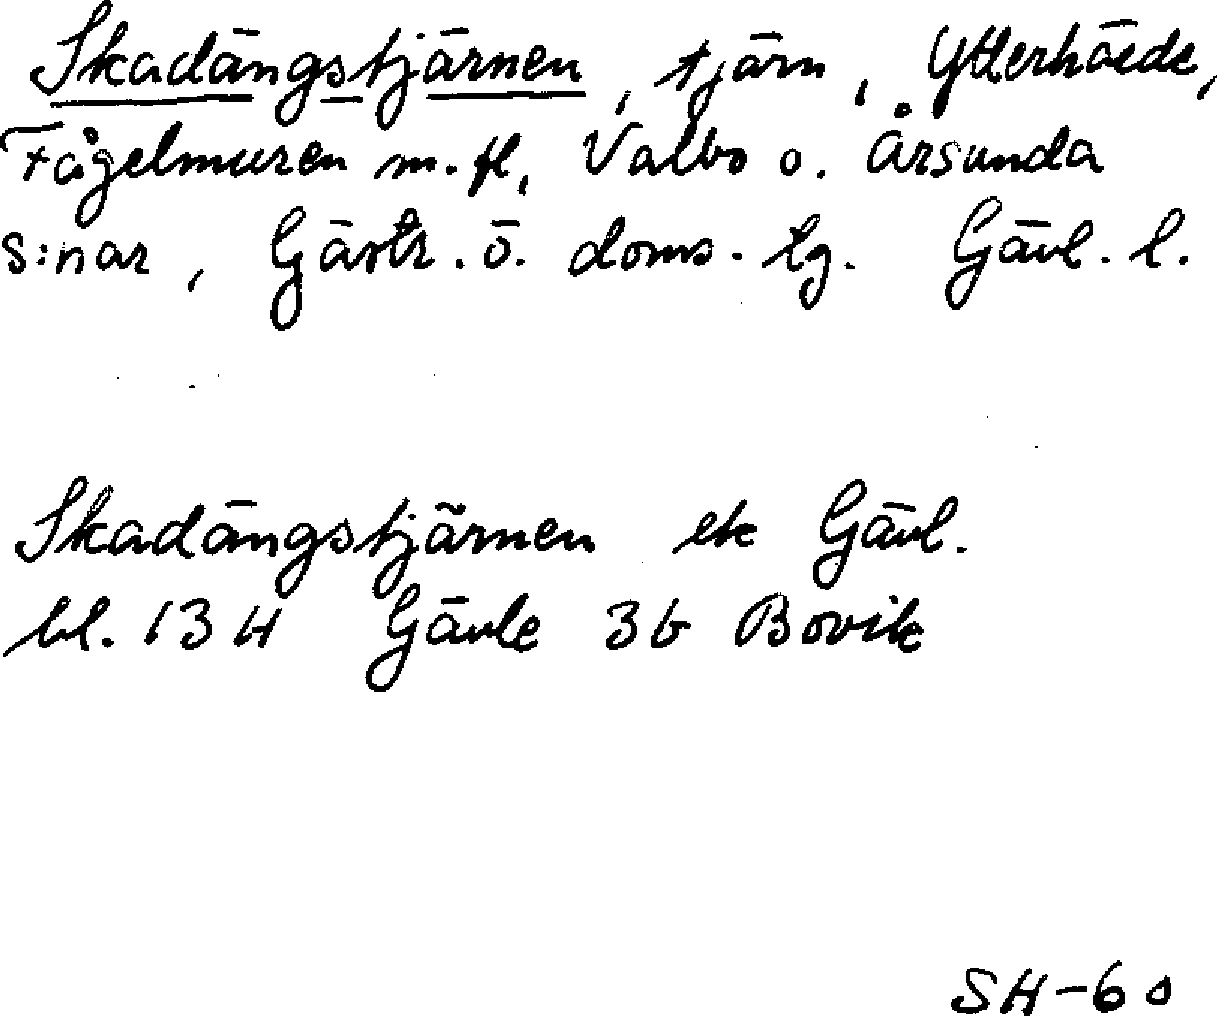 Skadängstjärnen, tjärn, Ytterhärde,
Fågelmuren m.fl, Valbo o. Årsunda
s:nar, Gästr. ö. doms. lg. Gävl. l.
Skadängstjärnen ek Gävl.
bl. 13 H Gävle 3b Bovik
SH-60